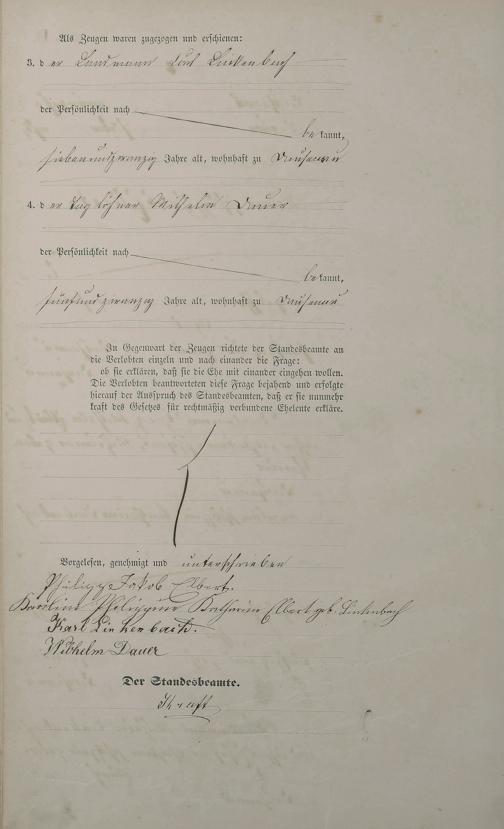 Als Zeugen waren zugezogen und erschienen:
3. d er Landmann Karl Linkenbach
der Persönlichkeit nach
be kannt,
siebenundzwanzig Jahre alt, wohnhaft zu Dausenau
4. d er Taglöhner Wilhelm Dauer
der Persönlichkeit nach
be kannt,
fünfundzwanzig Jahre alt, wohnhaft zu Dausenau
In Gegenwart der Zeugen richtete der Standesbeamte an
die Verlobten einzeln und nach einander die Frage:
ob sie erklären, daß sie die Ehe mit einander eingehen wollen.
Die Verlobten beantworteten diese Frage bejahend und erfolgte
hierauf der Ausspruch des Standesbeamten, daß er sie nunmehr
kraft des Gesetzes für rechtmäßig verbundene Eheleute erkläre.
Vorgelesen, genehmigt und unterschrieben
Philipp Jakob Elbert.
Karoline Philippine Katharine Elbert geb. Linkenbach
Karl Linkenbach.
Wilhelm Dauer
Der Standesbeamte.